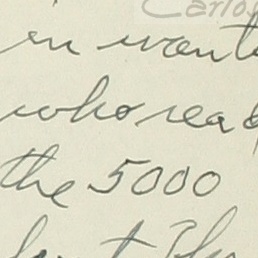 Carlos
in want
who read
the 5000